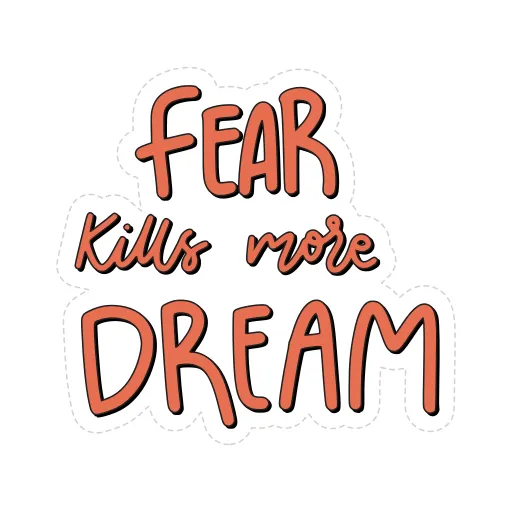 FEAR
Kills more
DREAM